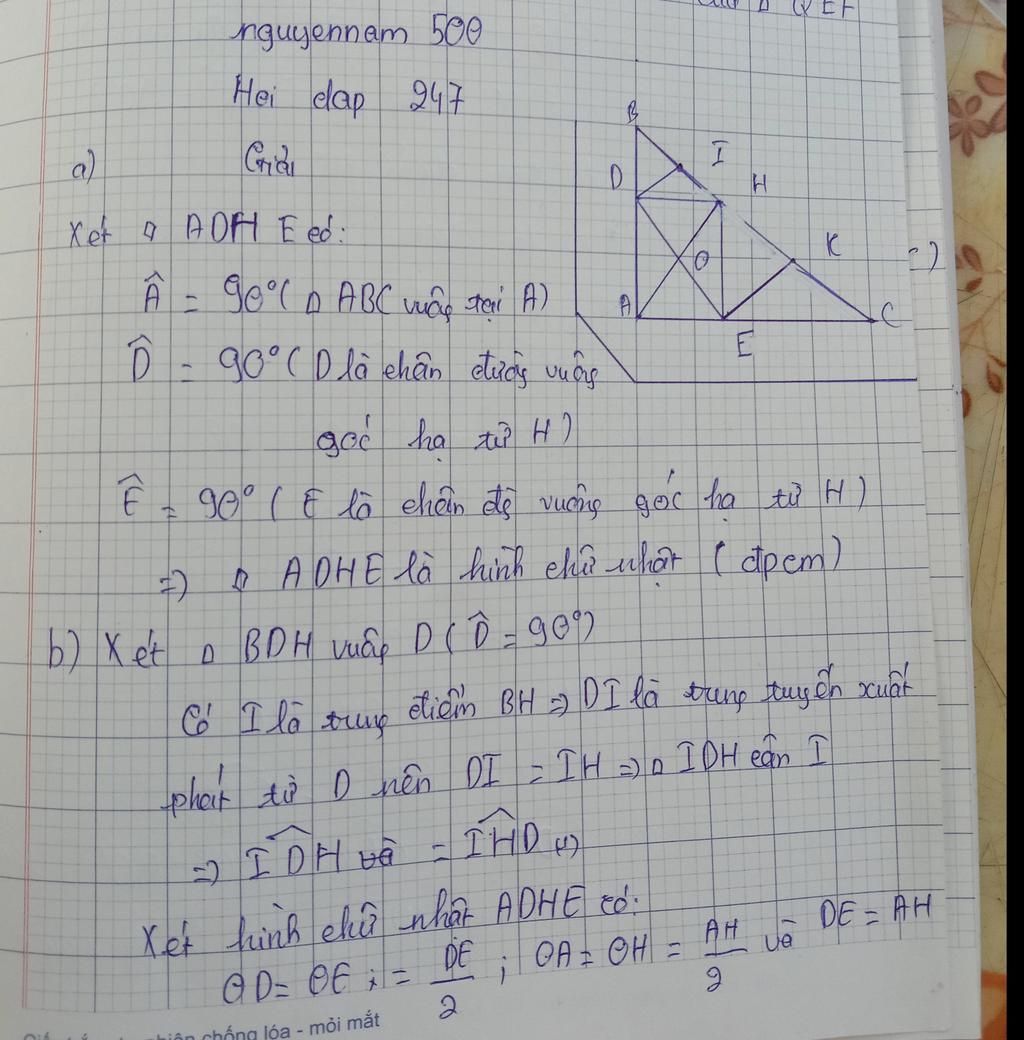 nguyennam 500
Hoi dap 247
a) Giải
Xét ▱ ADHE có:
Â = 90° (△ ABC vuông tại A)
D̂ = 90° (D là chân đường vuông
góc hạ từ H)
Ê = 90° (E là chân đg vuông góc hạ từ H)
=> ▱ ADHE là hình chữ nhật (đpcm)
b) Xét △ BDH vuông D (D̂ = 90°)
Có I là trung điểm BH => DI là trung tuyến xuất
phát từ D nên DI = IH => △ IDH cân I
=> ID̂H = IĤD (1)
Xét hình chữ nhật ADHE có:
OD = OE ; = DE/2 ; OA = OH = AH/2 và DE = AH
B
I
D
H
K
O
A
C
E
mỏi mắt